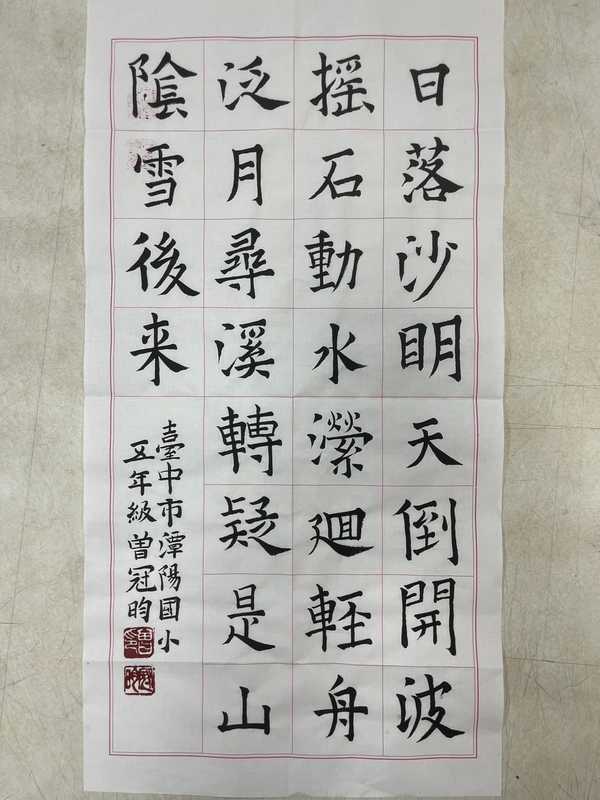 日落沙明天倒開波
摇石動水瀠廻輊舟
泛月尋溪轉疑是山
陰雪後来
臺中市潭陽國小
五年級曽冠昀